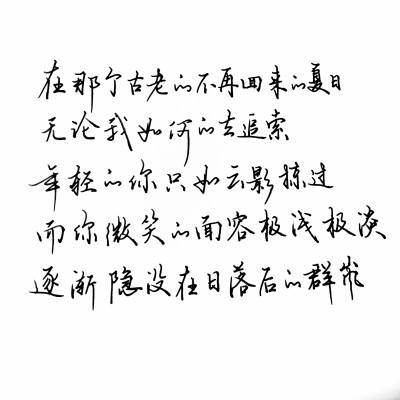 在那个古老的不再回来的夏日
无论我如何的去追索
年轻的你只如云影掠过
而你微笑的面容极浅极淡
逐渐隐没在日落后的群岚